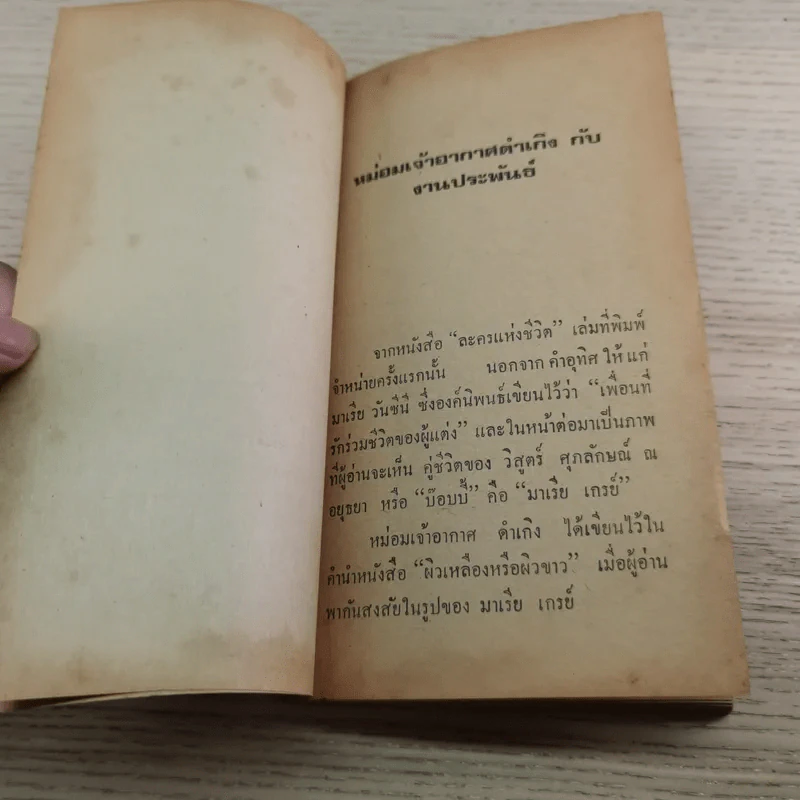 หม่อมเจ้าอากาศดำเกิง กับ
งานประพันธ์
จากหนังสือ “ละครแห่งชีวิต” เล่มที่พิมพ์
จำหน่ายครั้งแรกนั้น นอกจาก คำอุทิศ ให้ แก่
มาเรีย วันซินี ซึ่งองค์นิพนธ์เขียนไว้ว่า “เพื่อนที่
รักร่วมชีวิตของผู้แต่ง” และในหน้าต่อมาเป็นภาพ
ที่ผู้อ่านจะเห็น คู่ชีวิตของ วิสูตร์ ศุภลักษณ์ ณ
อยุธยา หรือ “บ๊อบบี้” คือ “มาเรีย เกรย์”
หม่อมเจ้าอากาศ ดำเกิง ได้เขียนไว้ใน
คำนำหนังสือ “ผิวเหลืองหรือผิวขาว” เมื่อผู้อ่าน
พากันสงสัยในรูปของ มาเรีย เกรย์